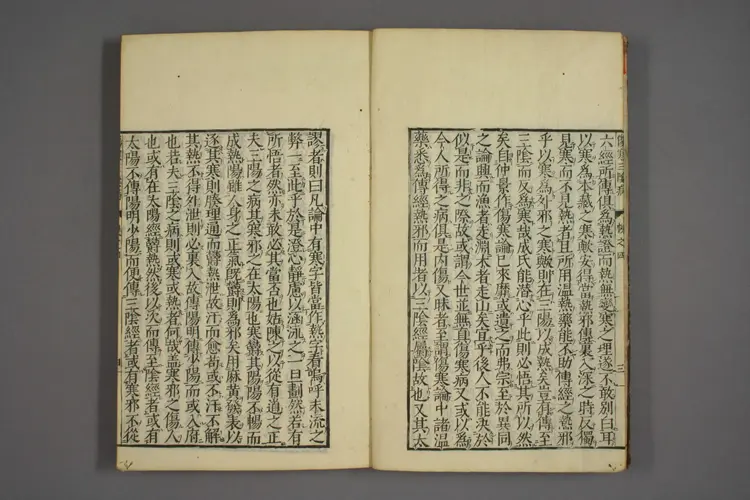 六經所傳俱為熱證而熱無變寒之理遂不敢別白耳
以寒為本藏之寒歟安得當熱邪傳裏入深之時反獨
見寒而不見熱者且所用溫熱藥能不助傳經之熱邪
乎以寒為外邪之寒歟則在三陽以成熱矣豈有傳至
三陰而反為寒哉成氏能潛心乎此則必悟其所以然
矣自仲景作傷寒論已來靡或遺之而弗宗至於異同
之論興而漁者走淵木者走山矣宜乎後人不能決於
似是而非之際故或謂今世並無真傷寒病又或以為
今人所得之病俱是內傷又昧者至謂傷寒論中諸溫
藥悉為傳經熱邪而用者以三陰經屬陰故也又其太
謬者則曰凡論中有寒字皆當作熱字看嗚呼末流之
弊一至此乎於是澄心靜慮以涵泳之一旦劃然若有
所悟者然亦未敢必其當否也姑陳之以從有道之正
夫三陽之病其寒邪之在太陽也寒鬱其陽陽不暢而
成熱陽雖人身之正氣既鬱則為邪矣用麻黃發表以
逐其寒則腠理通而鬱熱泄故汗而愈苟或不汗不解
其熱不得外泄則必裏入故傳陽明傳少陽而或入府
也若夫三陰之病則或寒或熱者何哉蓋寒邪之傷人
也或有在太陽經鬱熱然後以次而傳至陰經者或有
太陽不傳陽明少陽而便傳三陰經者或有寒邪不從